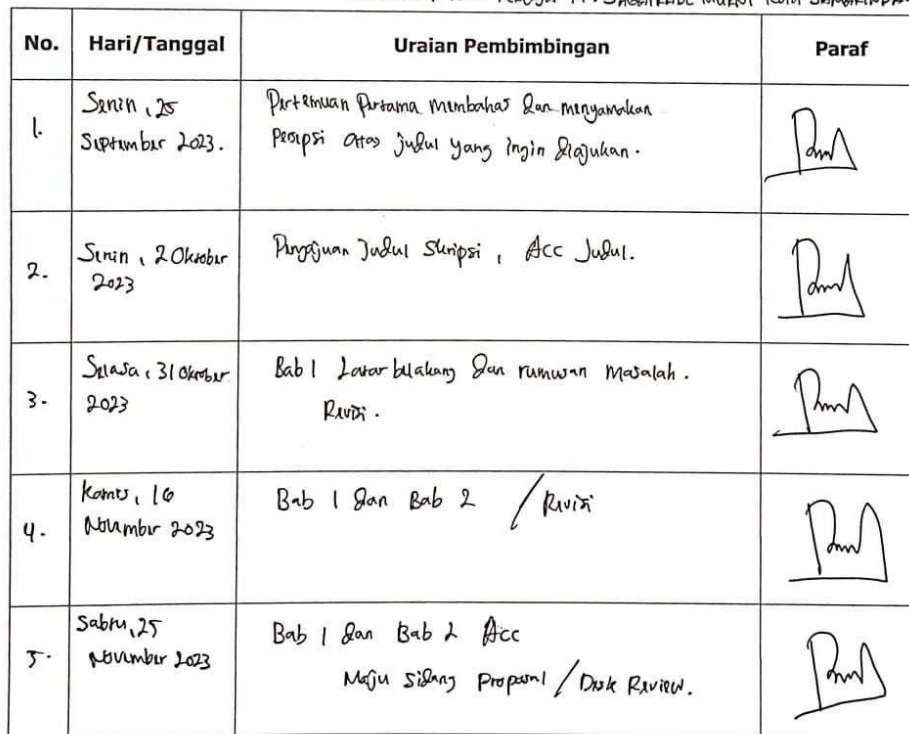 MURNI KOTA SAMARINDA
No. Hari/Tanggal Uraian Pembimbingan Paraf
1. Senin, 25 September 2023. Pertemuan Pertama membahas dan menyamakan
Persepsi atas judul yang ingin diajukan.
2. Senin, 2 Oktober 2023 Pengajuan Judul Skripsi, Acc Judul.
3. Selasa, 31 Oktober 2023 Bab 1 Latar belakang dan rumusan masalah.
Revisi.
4. Kamis, 16 November 2023 Bab 1 dan Bab 2 / Revisi
5. Sabtu, 25 November 2023 Bab 1 dan Bab 2 Acc
Maju Sidang Proposal / Desk Review.